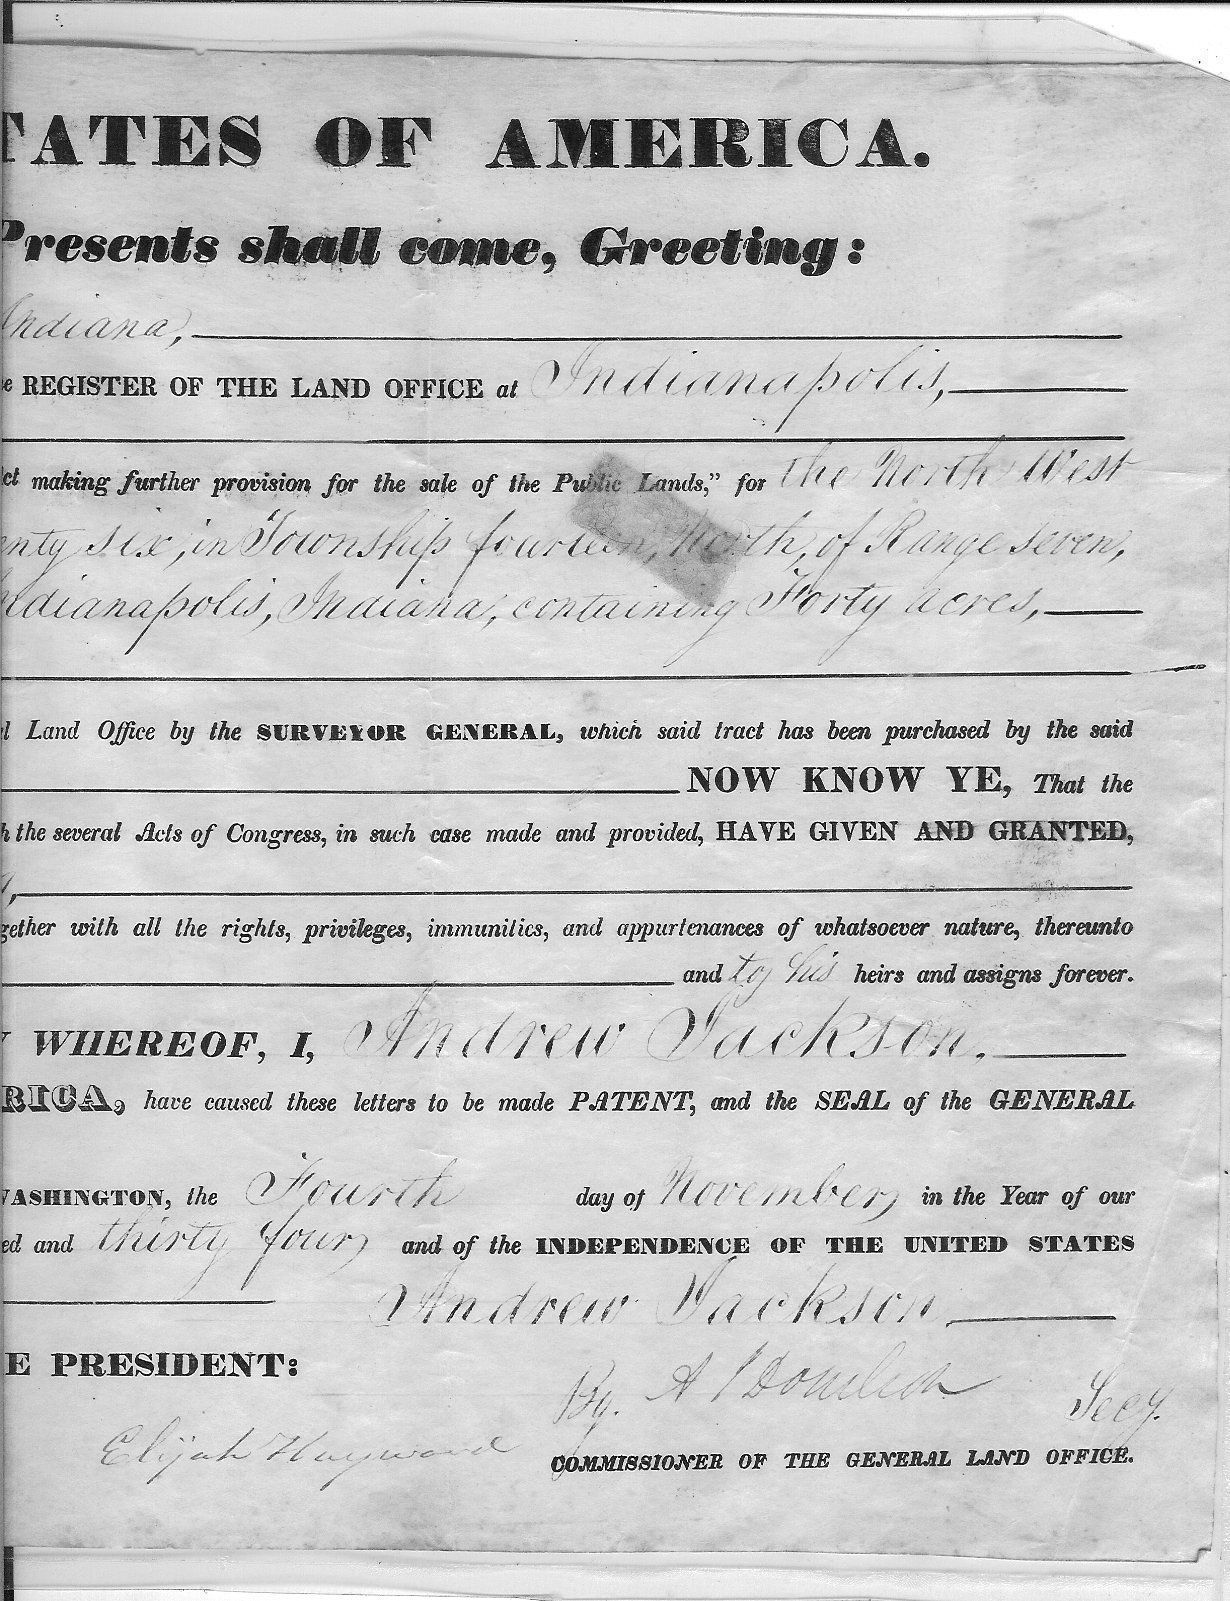 TATES OF AMERICA.
Presents shall come, Greeting:
Indiana,
REGISTER OF THE LAND OFFICE at Indianapolis,
ct making further provision for the sale of the Public Lands," for the North West
enty six, in Township fourteen, North, of Range seven,
ndianapolis, Indiana, containing Forty acres,
l Land Office by the SURVEYOR GENERAL, which said tract has been purchased by the said
NOW KNOW YE, That the
h the several Acts of Congress, in such case made and provided, HAVE GIVEN AND GRANTED,
gether with all the rights, privileges, immunities, and appurtenances of whatsoever nature, thereunto
and to his heirs and assigns forever.
Y WHEREOF, I, Andrew Jackson.
RICA, have caused these letters to be made PATENT, and the SEAL of the GENERAL
WASHINGTON, the Fourth day of November, in the Year of our
ed and thirty four, and of the INDEPENDENCE OF THE UNITED STATES
Andrew Jackson
E PRESIDENT:
By. A J Donelson Secy.
Elijah Hayward
COMMISSIONER OF THE GENERAL LAND OFFICE.